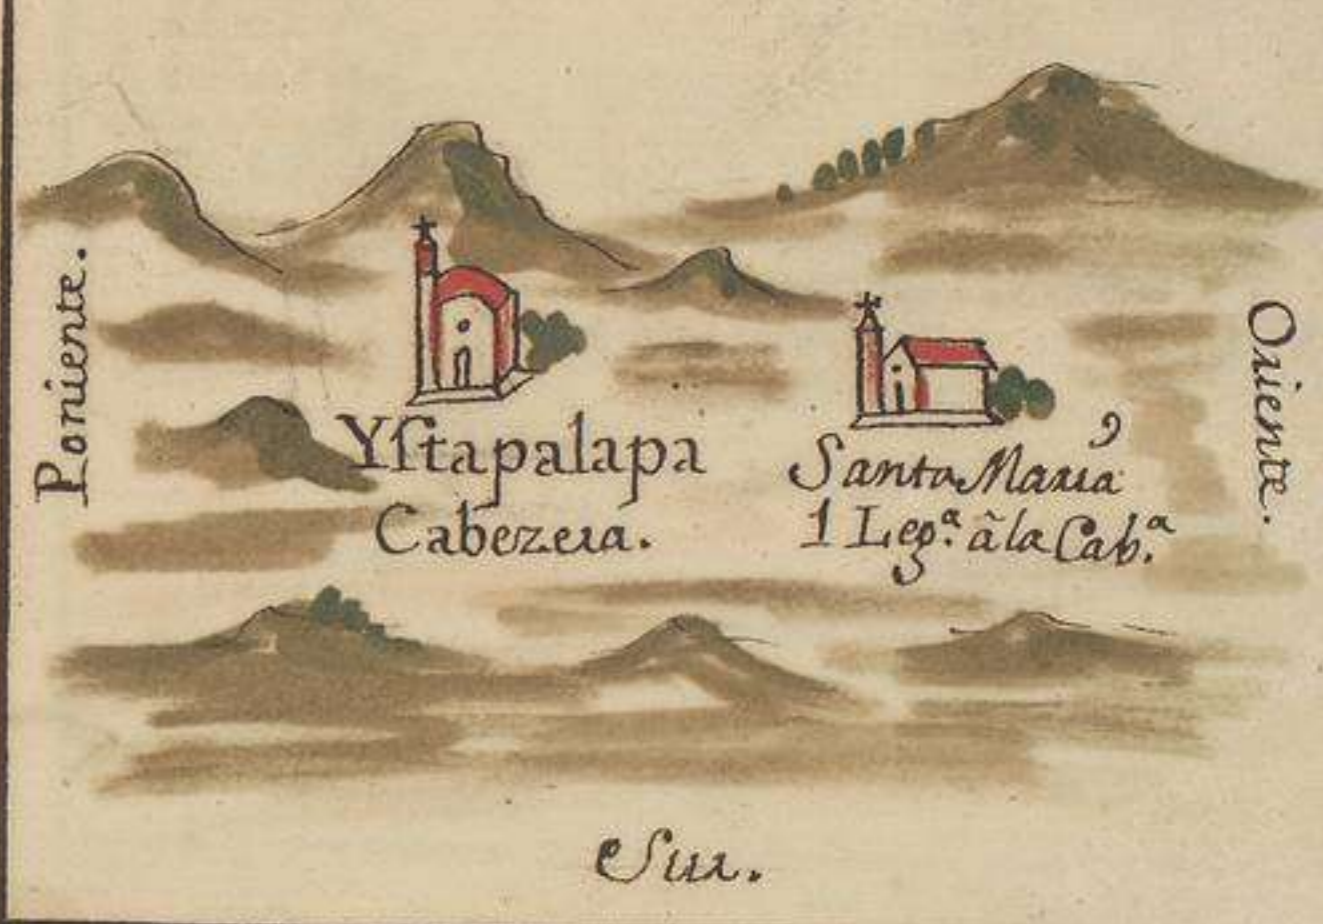 Poniente.
Yſtapalapa
Cabezera.
Santa Maria
1 Leg.ª â la Cab.ª
Oriente.
Sur.